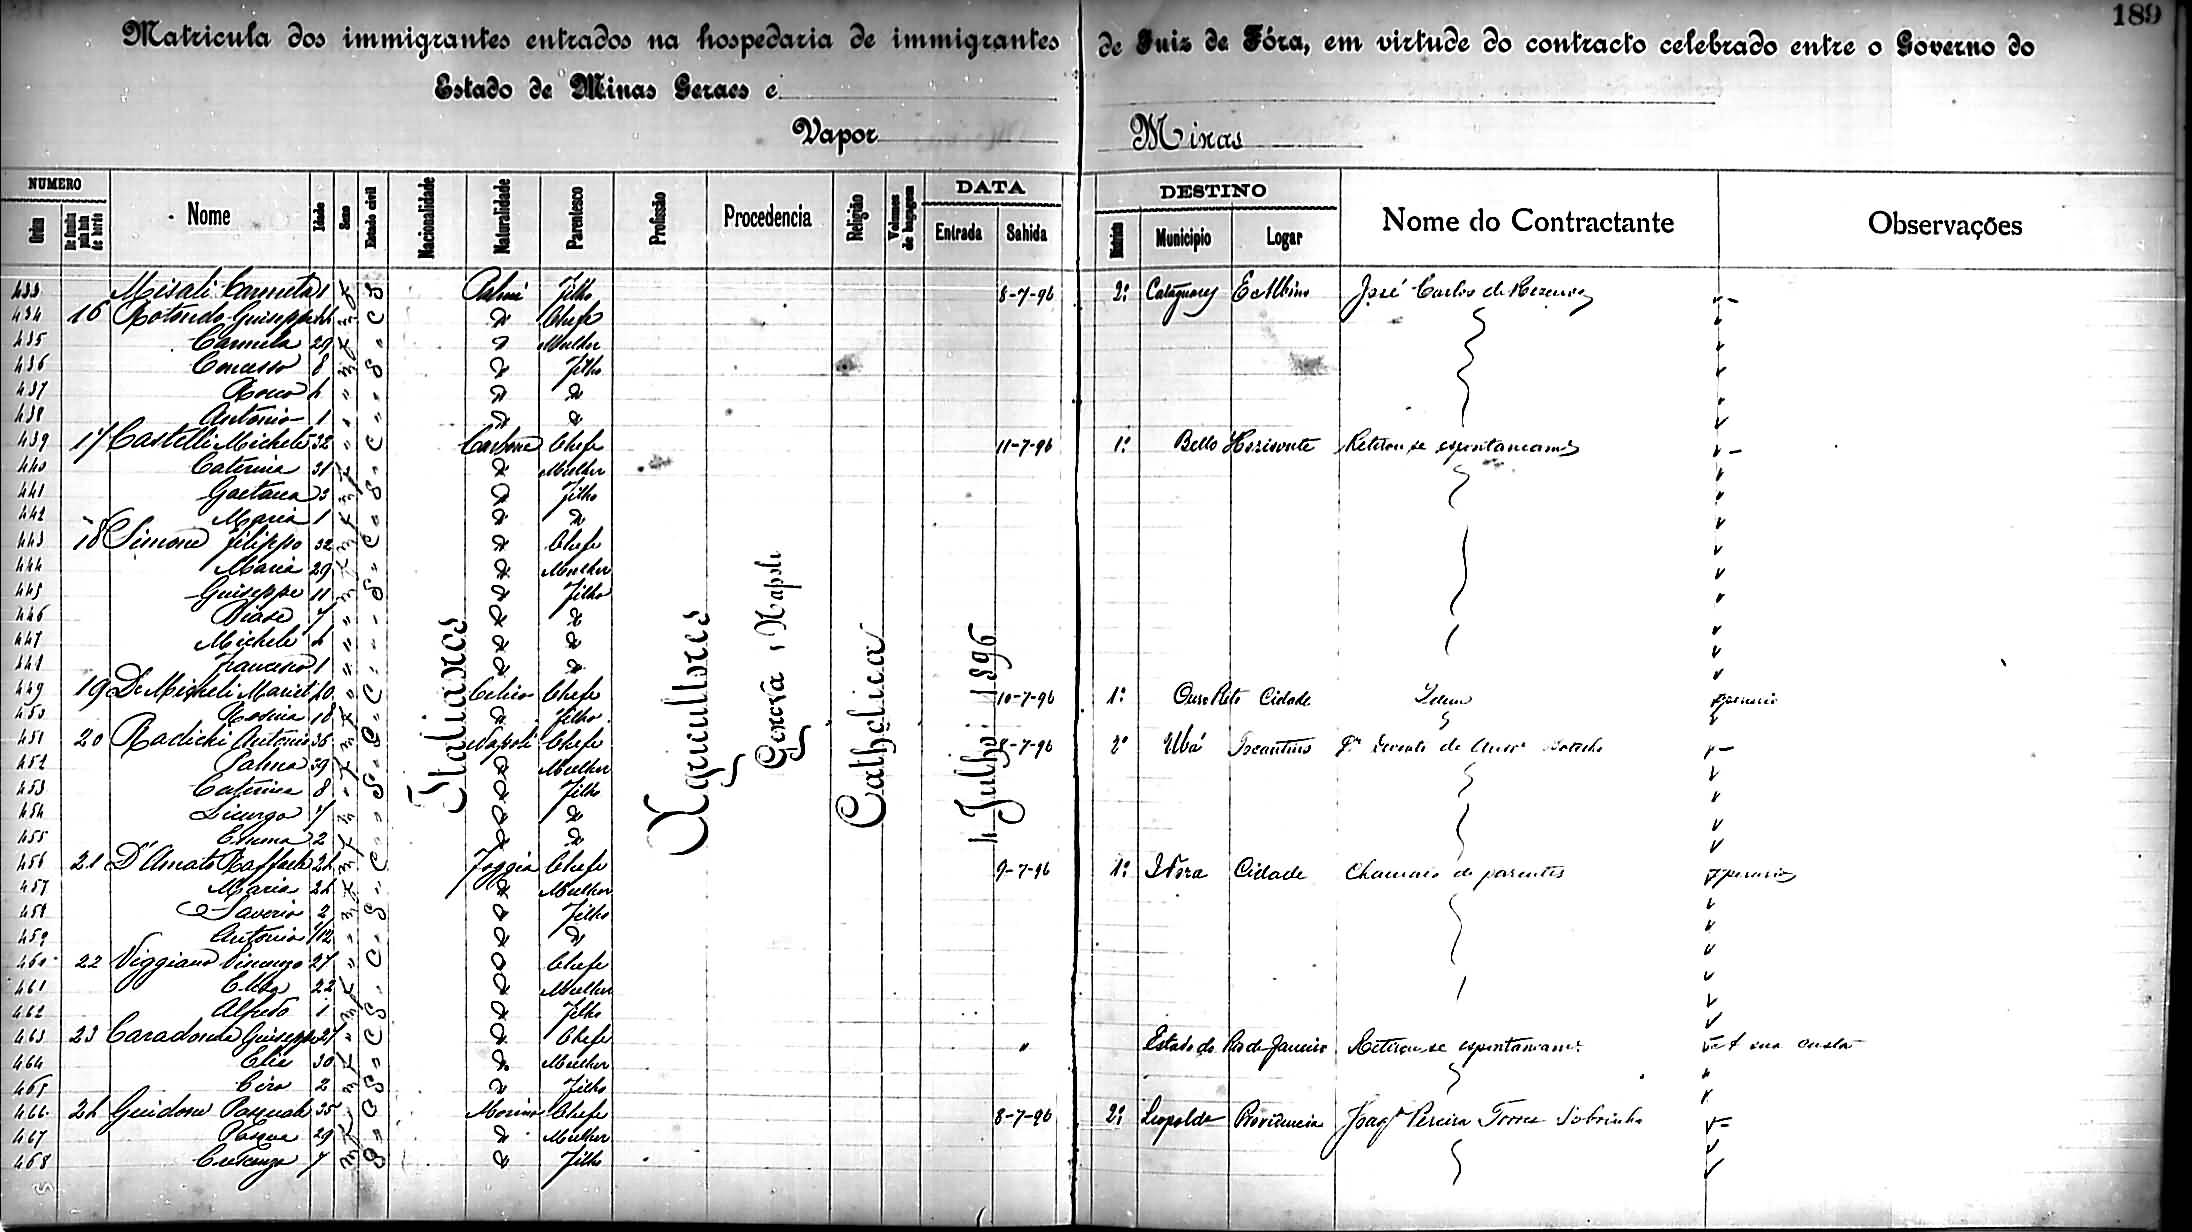 189
Matricula dos immigrantes entrados na hospedaria de immigrantes de Juiz de Fóra, em virtude do contracto celebrado entre o Governo do
Estado de Minas Geraes e
Vapor Minas
NUMERO DATA DESTINO
Ordem Nome Idade Sexo Estado civil Nacionalidade Naturalidade Parentesco Profissão Procedencia Religião Volumes de bagagem Entrada Sahida Districto Municipio Logar Nome do Contractante Observações
Italianos
Agricultores
Genova e Napoli
Catholica
4 Julho 1896
433 Misali 1 f S Palmi Filho 8-7-96 2º José Carlos de Rezende
434 16 Rotondo Guiseppe 44 m C " Chefe "
435 Carmela 29 f " " Mulher "
436 8 m S " Filho "
437 Rocco 4 " " " " "
438 Antonio 1 " " " " "
439 17 Castelli Michele 32 " C Chefe 11-7-96 1º Bello Horisonte Retirou se espontaneamᵉ
440 Caterina 31 f " " Mulher "
441 Gaetana 3 S " Filho "
442 Maria 1 f " " " "
443 18 Simone Filippo 32 m C " Chefe "
444 Maria 29 f " " Mulher "
445 Guiseppe 11 m S " Filho "
446 Biase 7 " " " " "
447 Michele 4 " " " " "
448 Francesco 1 " " " " "
449 19 De Micheli 40 " C Celico Chefe 10-7-96 1º Ouro Preto Cidade Idem operario
450 Rosina 18 f " " Filho "
451 20 Radichi Antonio 36 m C Napoli Chefe 8-7-96 2º Ubá Tocantins
452 Palma 39 f " " Mulher "
453 Caterina 8 " S " Filho "
454 Licurgo 7 m " " " "
455 Emma 2 f " " " "
456 21 D'Amato Raffaele 24 m C Foggia Chefe 9-7-96 1º J Fora Cidade Chamado de parentes operario
457 Maria 24 f " " Mulher "
458 Saverio 2 m S " Filho "
459 Antonio 1/12 " " " " "
460 22 Viggiano Vincenzo 27 " C " Chefe "
461 22 f " " Mulher "
462 Alfredo 1 m S " Filho "
463 23 Caradonna Guiseppe 27 " C " Chefe " Estado do Rio de Janeiro Retirou se espontaneamᵉ A sua custa
464 30 f " " Mulher "
465 Ciro 2 m S " Filho "
466 24 Guidone Pasquale 35 " C Chefe 8-7-96 2º Leopoldᵃ Providencia Joaqᵐ Pereira Torres Sobrinho
467 29 f " " Mulher "
468 7 m S " Filho "